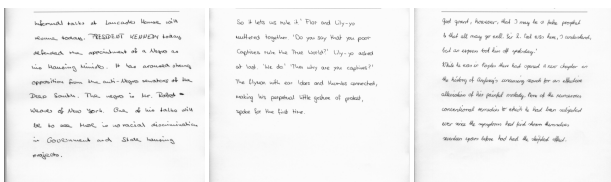 informal talks at Lancaster House will
resume today. PRESIDENT KENNEDY today
defended the appointment of a Negro as
his Housing Minister. It has aroused strong
opposition from the anti-Negro senators of the
Deep South. The negro is Mr. Robert
Weaver of New York. One of his tasks will
be to see there is no racial discrimination
in Government and State housing
projects.
So it lets us rule it.' Flor and Lily-yo
muttered together. 'Do you say that you poor
captives rule the True World?' Lily-yo asked
at last. 'We do.' 'Then why are you captives?'
The flyman with ear lobes and thumbs connected,
making his perpetual little gesture of protest,
spoke for the first time.
God grant, however, that I may be a false prophet
that all may go well. Sir R. Peel was here, I understand,
but an express had him off yesterday.'
What he saw in
the history of consuming search for an effective
alleviation of his painful malady. None of the numerous
conventional remedies to which he had been subjected
ever since the symptoms had first shown themselves
seventeen years before had had the slightest effect.